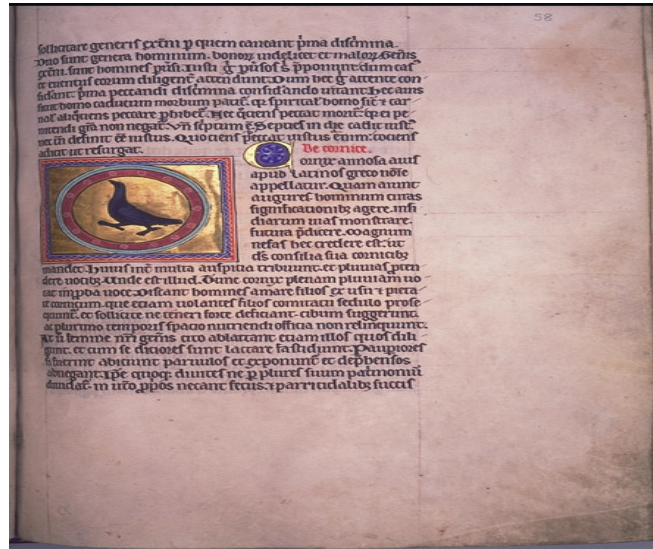 58
sollicitare generis exin p quem cantant pma discrimina.
Duo sunt genera hominum. bonoꝝ uidelicet et maloꝝ. Genus
sunt homines pusi. Iusti pusos pponunt. dum cas
et euentus eorum diligent attendunt. Dum hec g attente con
siderant. pma peccandi discrimina considando uitant. hec auis
sicut homo caducum morbum patit. qz spirital homo sic et car
nal aliquens peccare phibet. Hec quiens peccat morit. qz ei pe
nitendi gra non negat. Vn septum e Septies in die cadit iust.
nec tn definit ee iustus. Quociens peccat iustus enim. tociens
adicit ut resurgat.
De cornice.
Cornix annosa auis
apud latinos greco noie
appellatur. Quam aiunt
augures hominum curas
significationibz agere. insi
diarum uias monstrare.
futura pdicere. Magnum
nefas hec credere est. ut
ds consilia sua cornicibz
mandet. Huius int multa auspitia tribuunt. et pluuias pten
dere uocibz. Unde est illud. Tunc cornix plenam pluuiam uo
cat inpba uoce. Discant homines amare filios ex usu et pieta
te cornicum. que etiam uolantes filios comitatu sedulo prose
quunt. et sollicite ne teneri forte deficiant. cibum suggerunt.
ac plurimo temporis spacio nutriendi officia non relinquunt.
At u femine nri genis cito ablactant etiam illos quos dili
gunt. et cum se diciores sunt lactare fastidiunt. Paupiores
u fuerint abiciunt paruulos et exponunt et dephensos
abnegant. Ipse quoqz diuites ne p plures suum patrimoniū
diuidat. in utero ppos necant fetus. et parricidalibz succis